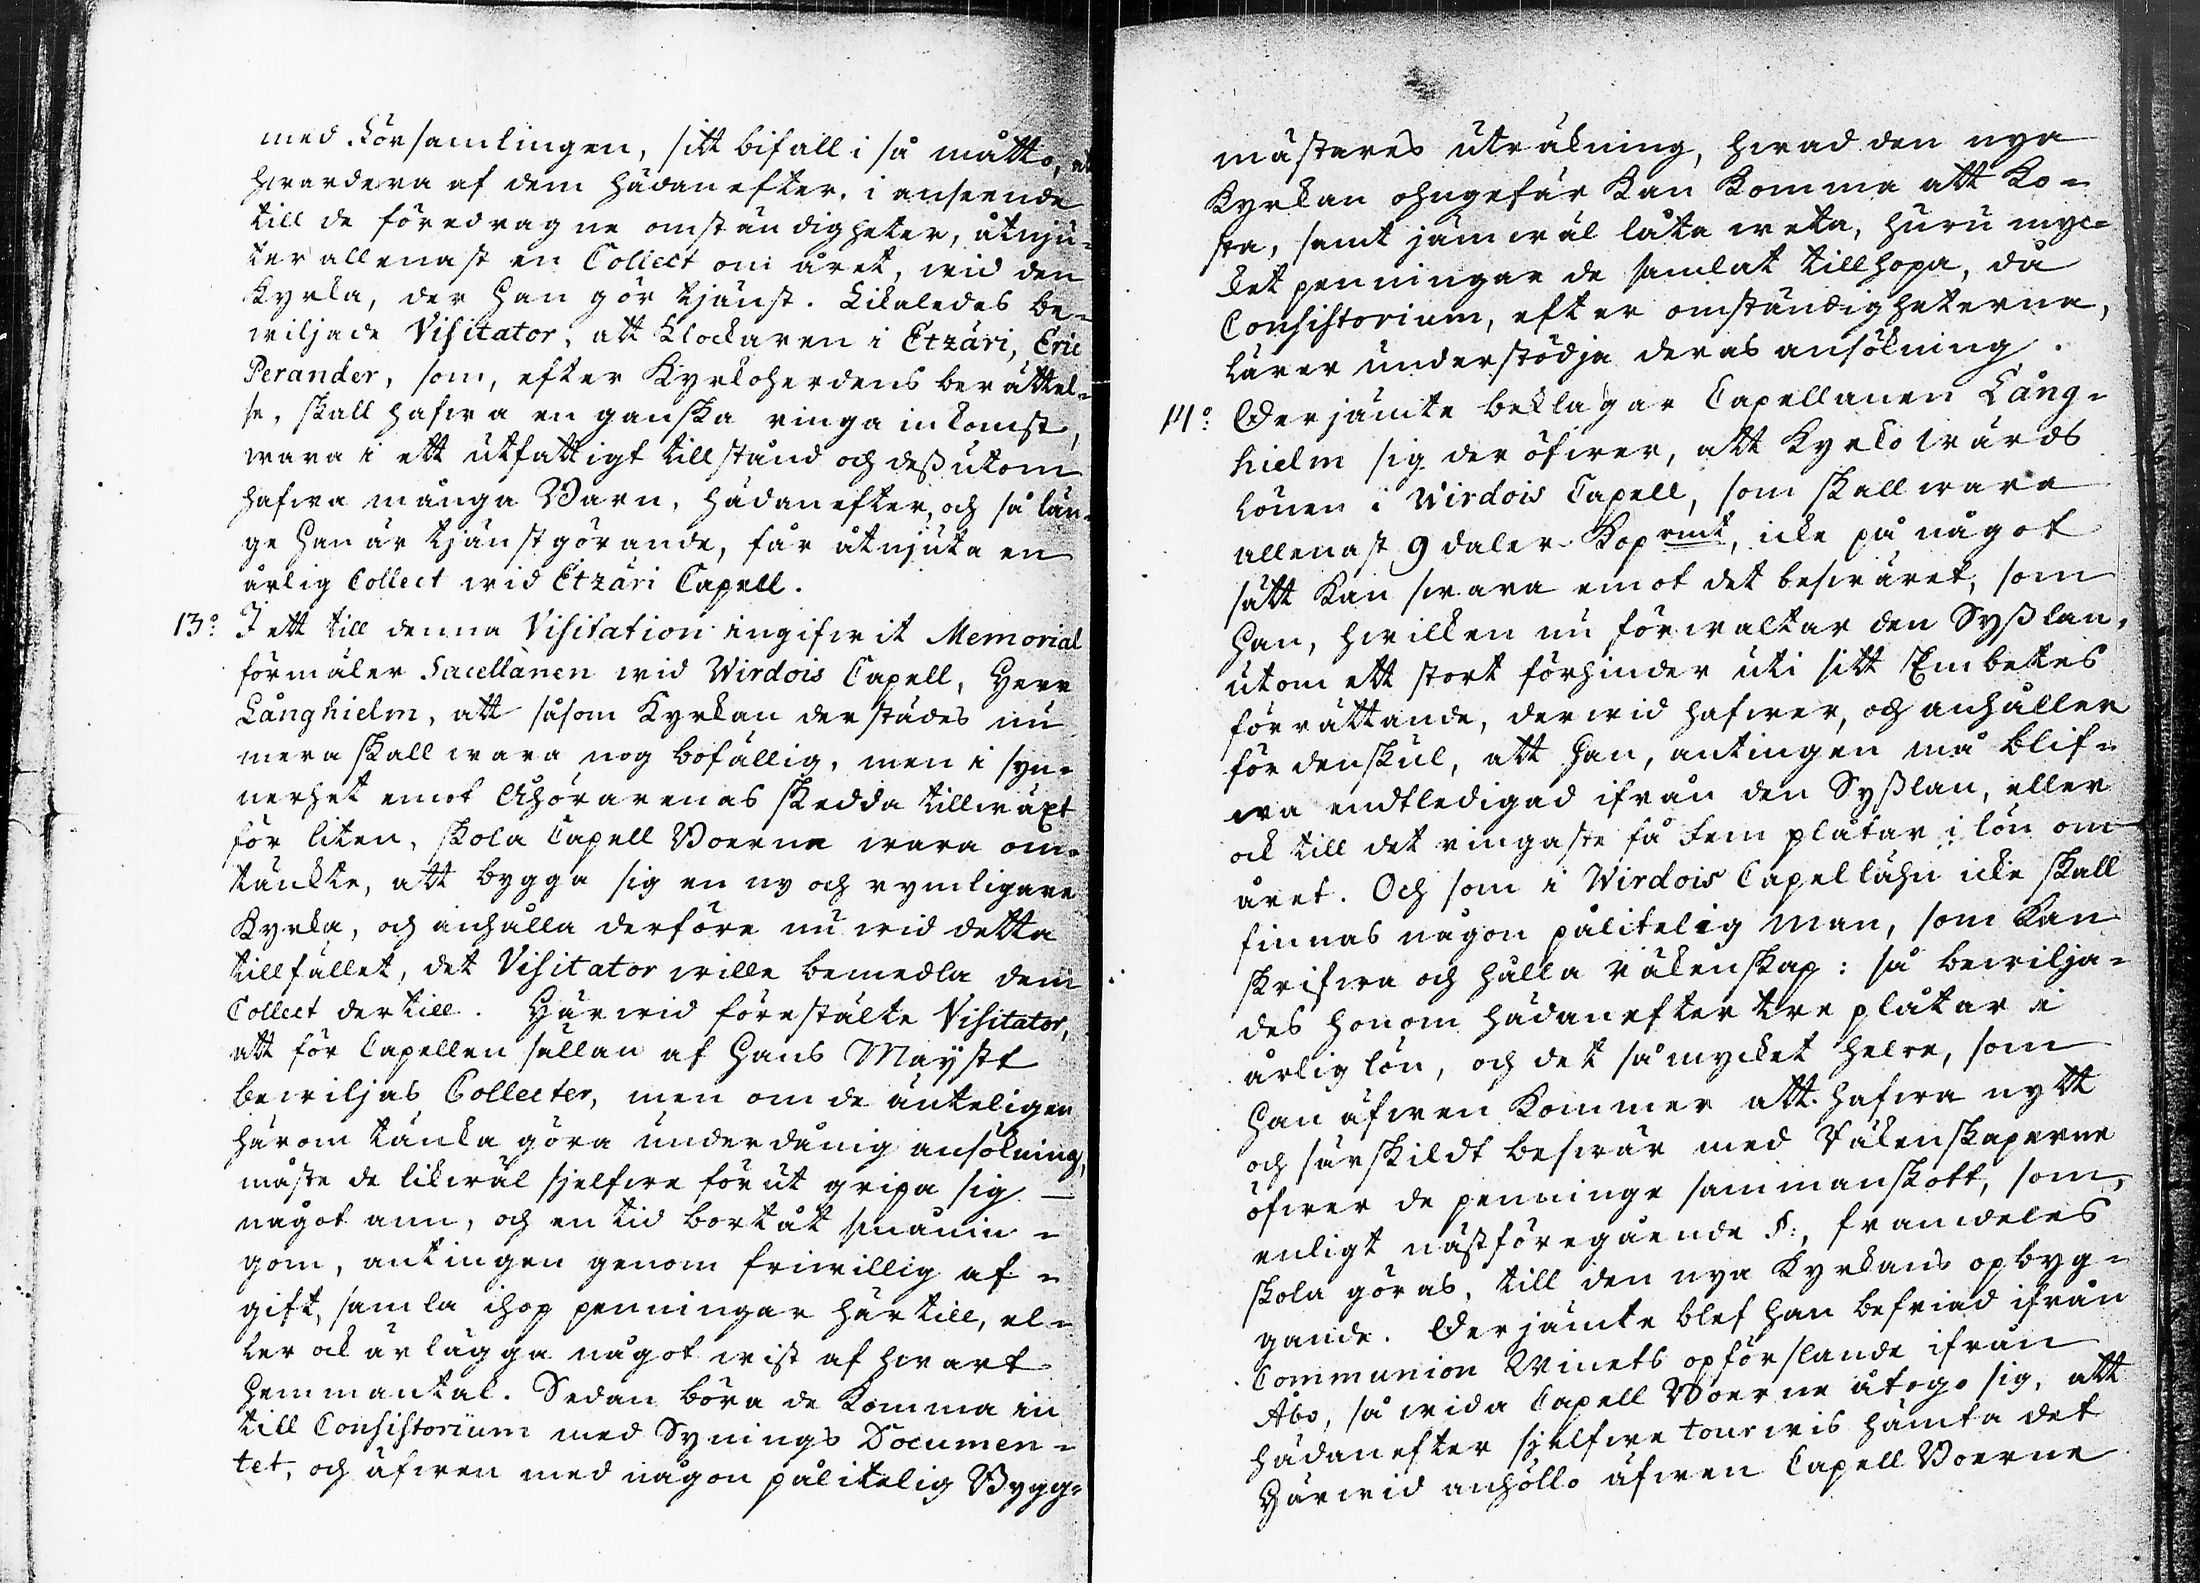 med Församlingen, sitt bifall i så måtto, at
hwardera af dem hädanefter, i anseende
till de föredragne omständigheter, åtnju-
ter allenast en Collect om året, wid den
Kyrka, der Han gör tjänst. Likaledes be-
wiljade Visitator, att Klockaren i Etzäri, Eric
Perander, som, efter Kyrkoherdens berättel-
se, skall hafwa en ganska ringa inkomst,
wara i ett utfattigt tillstånd och dessutom
hafwa många Barn, hädanefter, och så län-
ge Han är tjänstgörande, får åtnjuta en
årlig Collect wid Etzäri Capell.
13:o I ett till denna Visitation ingifwit Memorial
förmäler Sacellanen wid Wirdois Capell, Herr
Långhielm, att såsom Kyrkan derstädes nu
mera skall wara nog bofällig, men i syn-
nerhet emot Åhörarenas skedda tillwäxt
för liten, skola Capell Boerne wara om-
tänkte, att bygga sig en ny och rymligare
Kyrka, och anhålla derföre nu wid detta
tillfället, det Visitator wille bemedla dem
Collect dertill. Härwid förestälte Visitator,
att för Capellen sällan af Hans Mayst
bewiljas Collecter, men om de änteligen
härom tänka göra underdånig ansökning,
måste de likwäl sjelfwe förut gripa sig —
något ann, och en tid bortåt smånin-
gom, antingen genom friwillig af-
gift, samla ihop penningar härtill, el-
ler ock ärlägga något wist af hwart
Hemmantal. Sedan böra de komma in
till Consistorium med Synings Documen-
tet, och äfwen med någon pålitelig Bygg-
mästares uträkning, hwad den nya
Kyrkan ohngefär kan komma att ko-
sta, samt jämwäl låta weta, huru myc-
ket penningar de samlat tillhopa, då
Consistorium, efter omständigheterna,
lärer understödja deras ansökning.
14:o Derjämte beklagar Capellanen Lång-
hielm sig deröfwer, att Kyrkowärds
lönen i Wirdois Capell, som skall wara
allenast 9 daler Kopr mt, icke på något
sätt kan swara emot det beswäret, som
Han, hwilken nu förwaltar den Sysslan,
utom ett stort förhinder uti sitt Embetes
förrättande, derwid hafwer, och anhåller
fördenskul, att Han, antingen må blif-
wa endtledigad ifrån den Sysslan, eller
ock till det ringaste få fem plåtar i lön om
året. Och som i Wirdois Capellähn icke skall
finnas någon pålitelig Man, som kan
skrifwa och hålla räkenskap: så bewilja-
des honom hädanefter tre plåtar i
årlig lön, och det så mycket helre, som
Han äfwen kommer att hafwa nytt
och särskildt beswär med Räkenskaperne
öfwer de penninge sammanskott, som,
enligt nästföregående §:, framdeles
skola göras, till den nya Kyrkans opbyg-
gande. Derjämte blef Han befriad ifrån
Communion Winets opförslande ifrån
Åbo, så wida Capell Boerne åtogo sig, att
hädanefter sjelfwe tourwis hämta det
Härwid anhöllo äfwen Capell Boerne